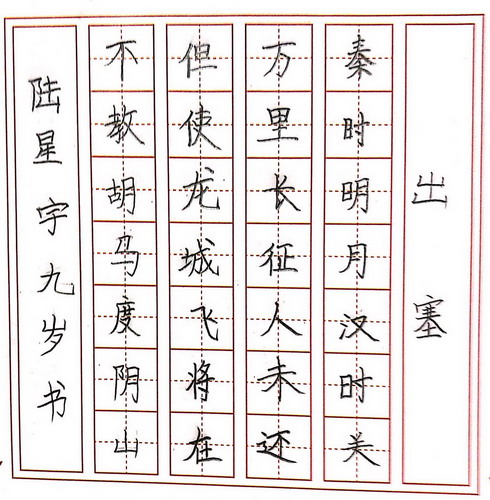 出塞
秦时明月汉时关
万里长征人未还
但使龙城飞将在
不教胡马度阴山
陆星宇九岁书